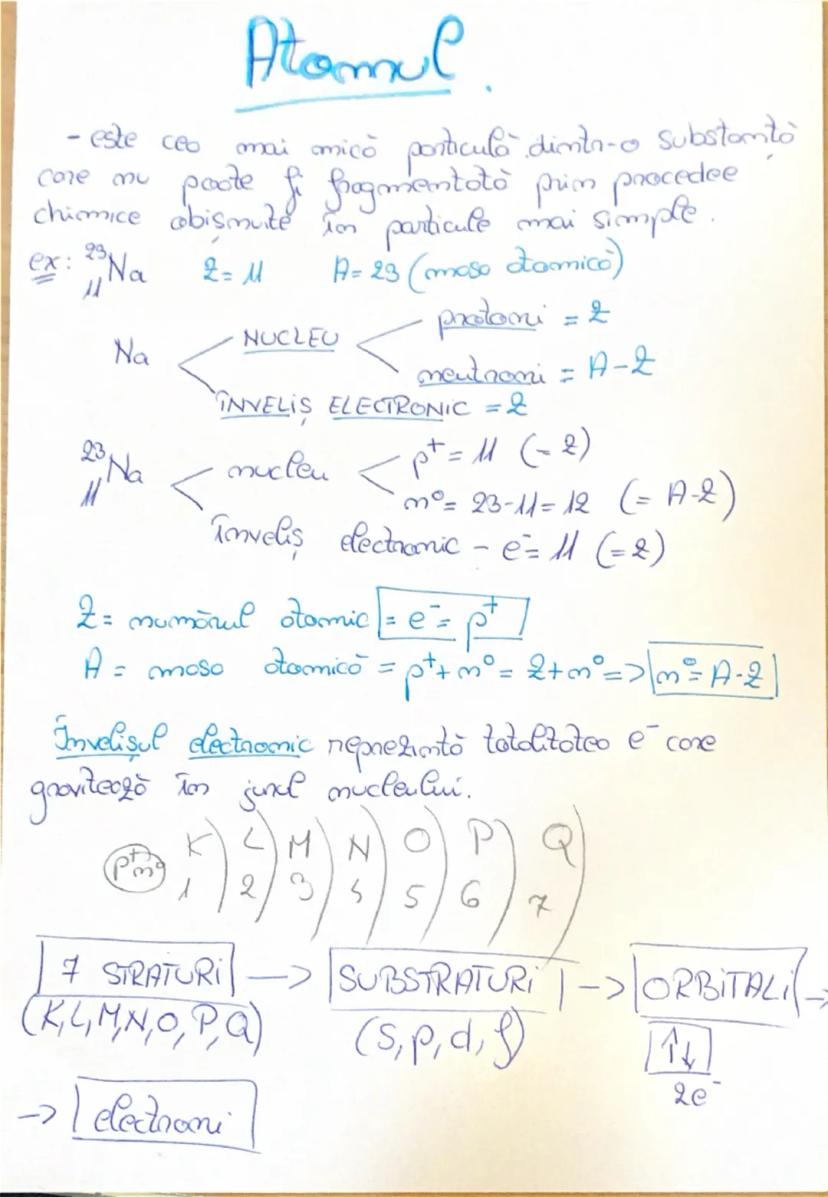 Atomul.
- este cea mai mică particulă dintr-o substanță
care nu poate fi fragmentată prin procedee
chimice obișnuite în particule mai simple.
ex: ²³₁₁Na Z= 11 A= 23 (masa atomică)
Na < NUCLEU < protoni = Z
neutroni = A-Z
ÎNVELIȘ ELECTRONIC = Z
²³₁₁Na < nucleu < p⁺ = 11 (-Z)
n⁰= 23-11= 12 (= A-Z)
înveliș electronic - e⁻= 11 (=Z)
Z= numărul atomic = e⁻= p⁺
A = masa atomică = p⁺+ n⁰= Z+n⁰=> n⁰= A-Z
Învelișul electronic reprezintă totalitatea e⁻ care
gravitează în jurul nucleului.
K L M N O P Q
p⁺n⁰ 1 2 3 4 5 6 7
7 STRATURI -> SUBSTRATURI -> ORBITALI ->
(K,L,M,N,O,P,Q) (s,p,d,f) ↑↓
2e⁻
-> electroni